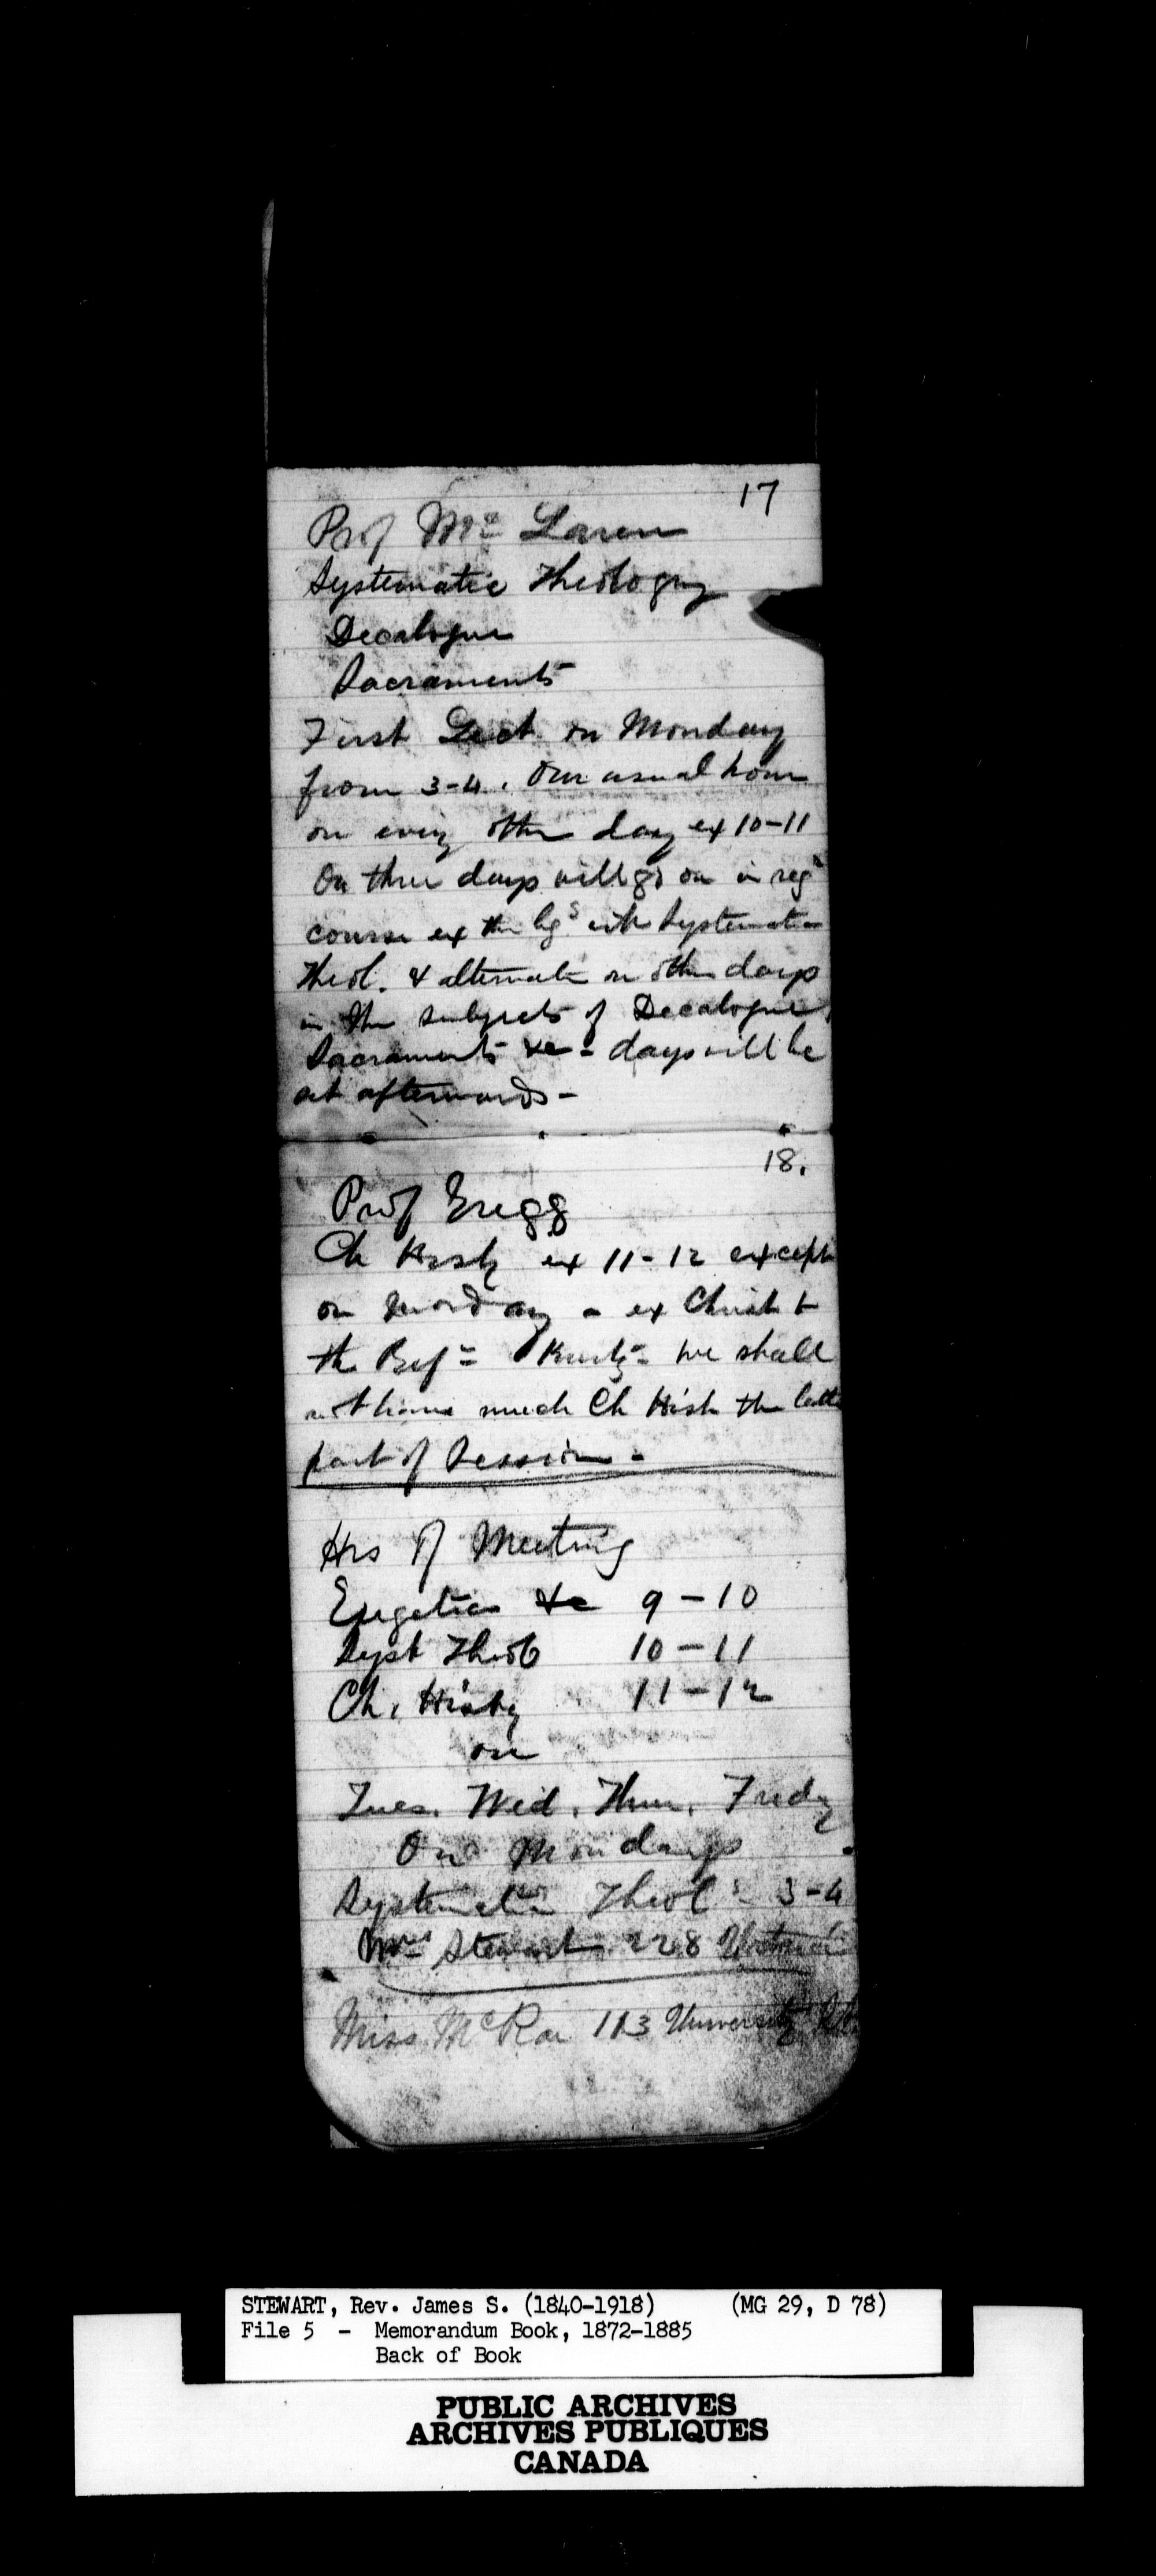 17
Prof Mc Laren
Systematic Theology
Decalogue
Sacraments
First Lect on Monday
from 3-4. Our usual hour
on every other day ex 10-11
On three days will go on in reg
course ex the with Systematic
Theol. & alternate on other days
in the subjects of Decalogue,
Sacraments &c - days will be
set afterwards -
18.
Prof Gregg
Ch Histy ex 11-12 except
on Monday - ex Christ to
the Refn = Kurtz - We shall
not have much Ch Hist the latter
part of Session -
Hrs of Meeting
Exegetics &c 9-10
Syst Theol 10-11
Ch. Histy 11-12
on
Tues. Wed. Thur. Fridy
On Mondays
Systematic Theol 3-4
Mrs Stewart 228
Miss McRae 113 University St
STEWART, Rev. James S. (1840-1918) (MG 29, D 78)
File 5 - Memorandum Book, 1872-1885
Back of Book
PUBLIC ARCHIVES
ARCHIVES PUBLIQUES
CANADA